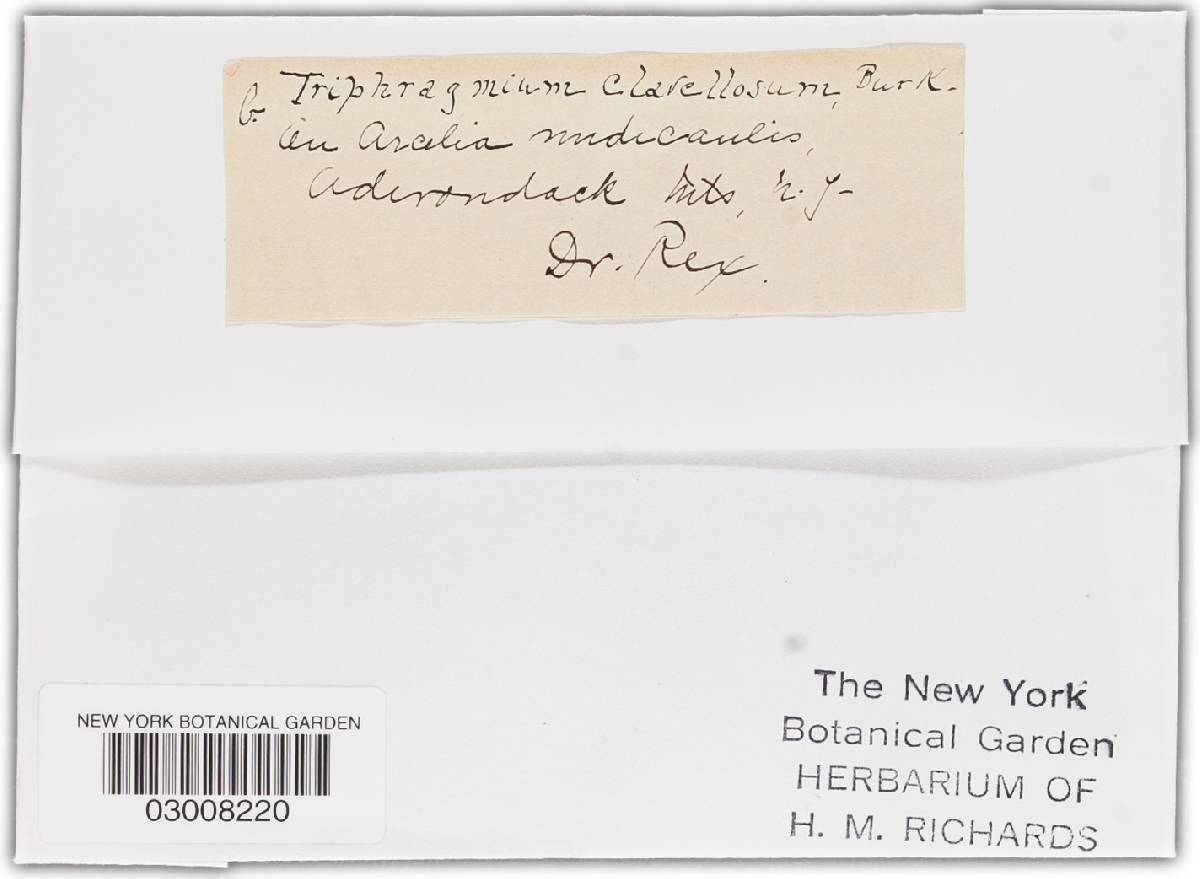 b. Triphragmium clavellosum, Burk.
On Aralia nudicaulis,
Adirondack Mts, N.Y.
Dr. Rex.
NEW YORK BOTANICAL GARDEN
03008220
The New York
Botanical Garden
HERBARIUM OF
H. M. RICHARDS